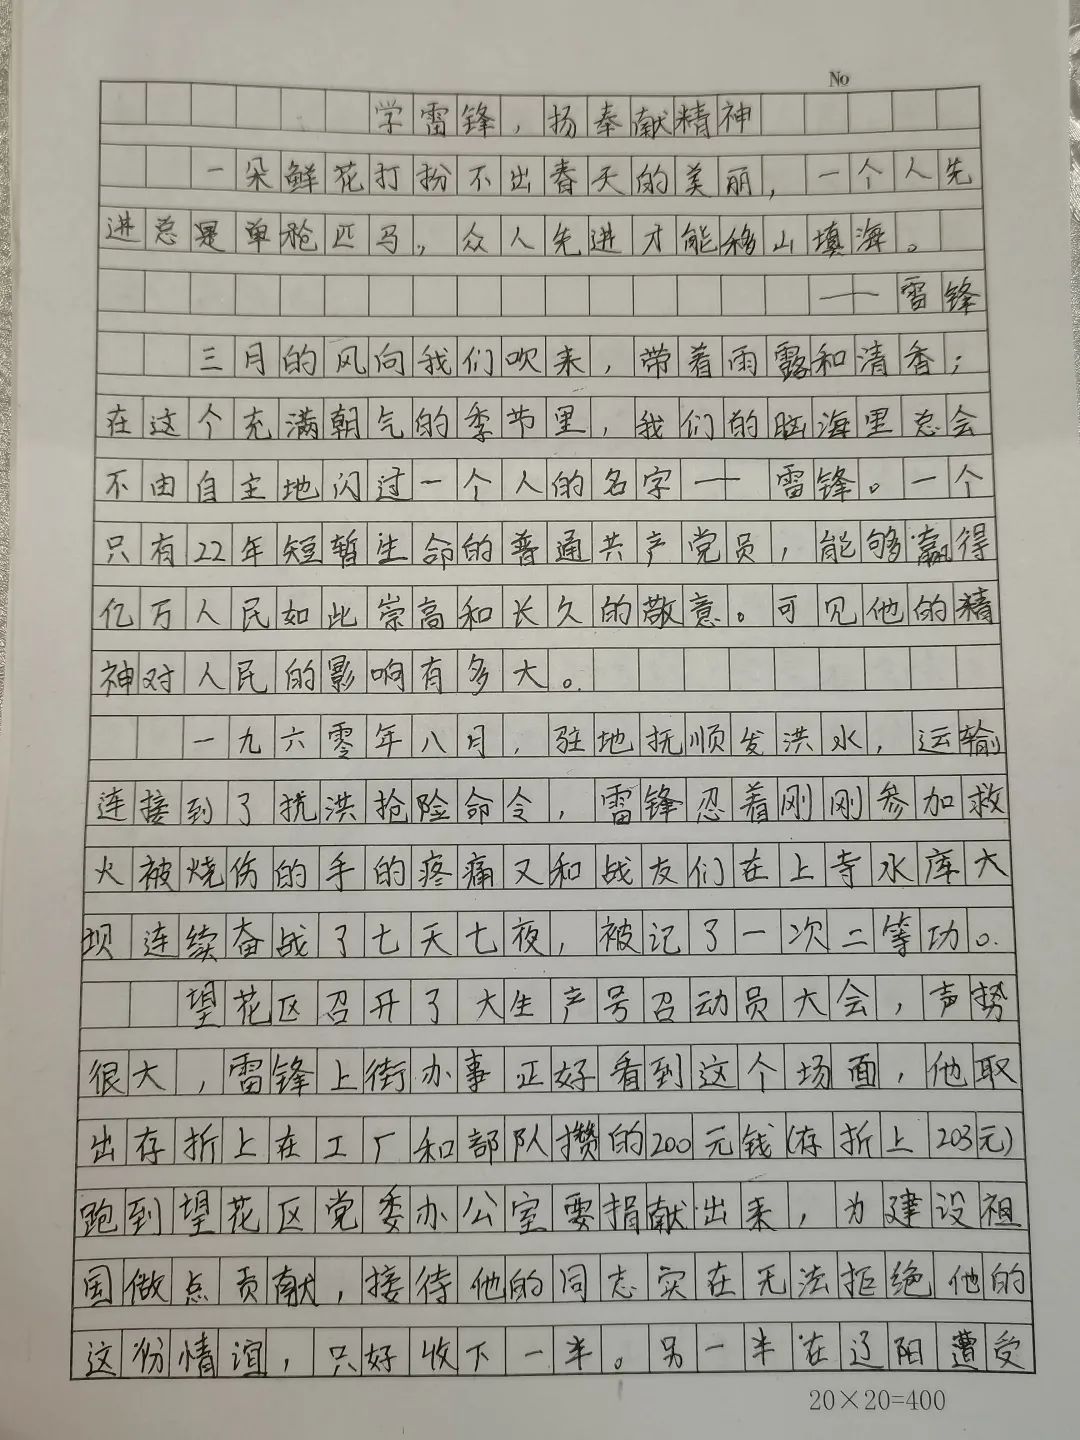 No
学雷锋，扬奉献精神
一朵鲜花打扮不出春天的美丽，一个人先
进总是单枪匹马，众人先进才能移山填海。
——雷锋
三月的风向我们吹来，带着雨露和清香；
在这个充满朝气的季节里，我们的脑海里总会
不由自主地闪过一个人的名字——雷锋。一个
只有22年短暂生命的普通共产党员，能够赢得
亿万人民如此崇高和长久的敬意。可见他的精
神对人民的影响有多大。
一九六零年八月，驻地抚顺发洪水，运输
连接到了抗洪抢险命令，雷锋忍着刚刚参加救
火被烧伤的手的疼痛又和战友们在上寺水库大
坝连续奋战了七天七夜，被记了一次二等功。
望花区召开了大生产号召动员大会，声势
很大，雷锋上街办事正好看到这个场面，他取
出存折上在工厂和部队攒的200元钱(存折上203元)
跑到望花区党委办公室要捐献出来，为建设祖
国做点贡献，接待他的同志实在无法拒绝他的
这份情谊，只好收下一半。另一半在辽阳遭受
20×20=400